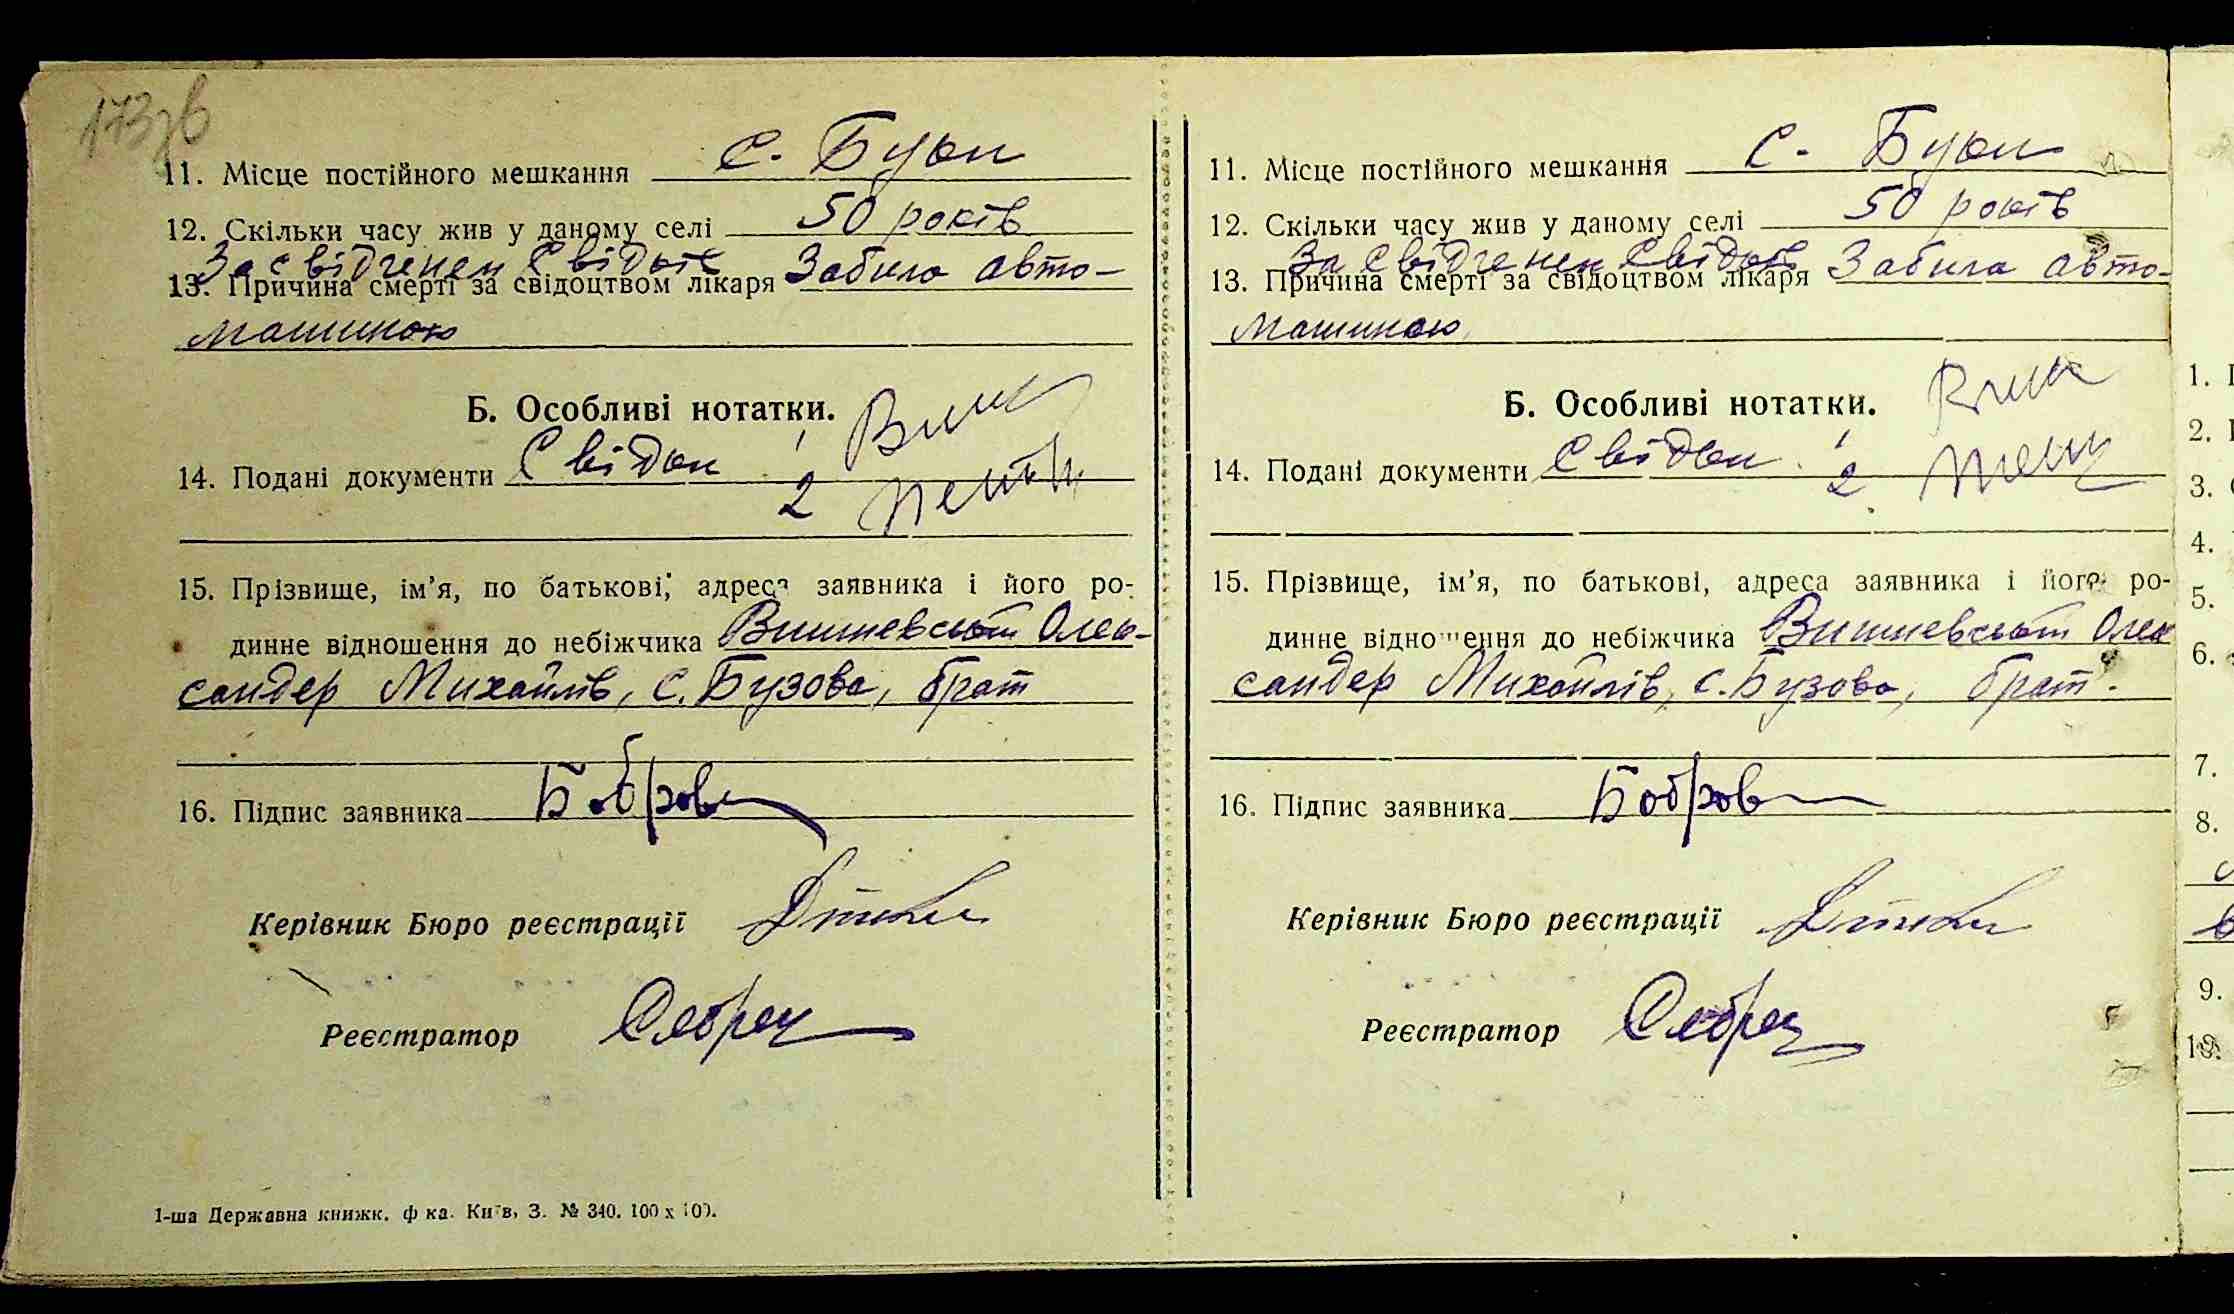 173зв
11. Місце постійного мешкання с. Буки
12. Скільки часу жив у даному селі 50 років
За свідченем свідків
13. Причина смерті за свідоцтвом лікаря Забила авто-
машиною
Б. Особливі нотатки.
14. Подані документи Свідки 1
2
15. Прізвище, ім’я, по батькові, адреса заявника і його ро-
динне відношення до небіжчика Вишневський Олек-
сандер Михайлів, с. Бузова, брат
16. Підпис заявника Бобров
Керівник Бюро реєстрації
Реєстратор
1-ша Державна книжк. ф-ка. Київ, З. № 340. 100 х 100.
11. Місце постійного мешкання с. Буки
12. Скільки часу жив у даному селі 50 років
За свідченем свідків
13. Причина смерті за свідоцтвом лікаря Забила авто-
машиною
Б. Особливі нотатки.
14. Подані документи Свідки. 1
2
15. Прізвище, ім’я, по батькові, адреса заявника і його ро-
динне відношення до небіжчика Вишневський Олек
сандер Михайлів, с. Бузова, брат.
16. Підпис заявника Бобров
Керівник Бюро реєстрації
Реєстратор
1.
2.
3.
4.
5.
6.
7.
8.
9.
10.